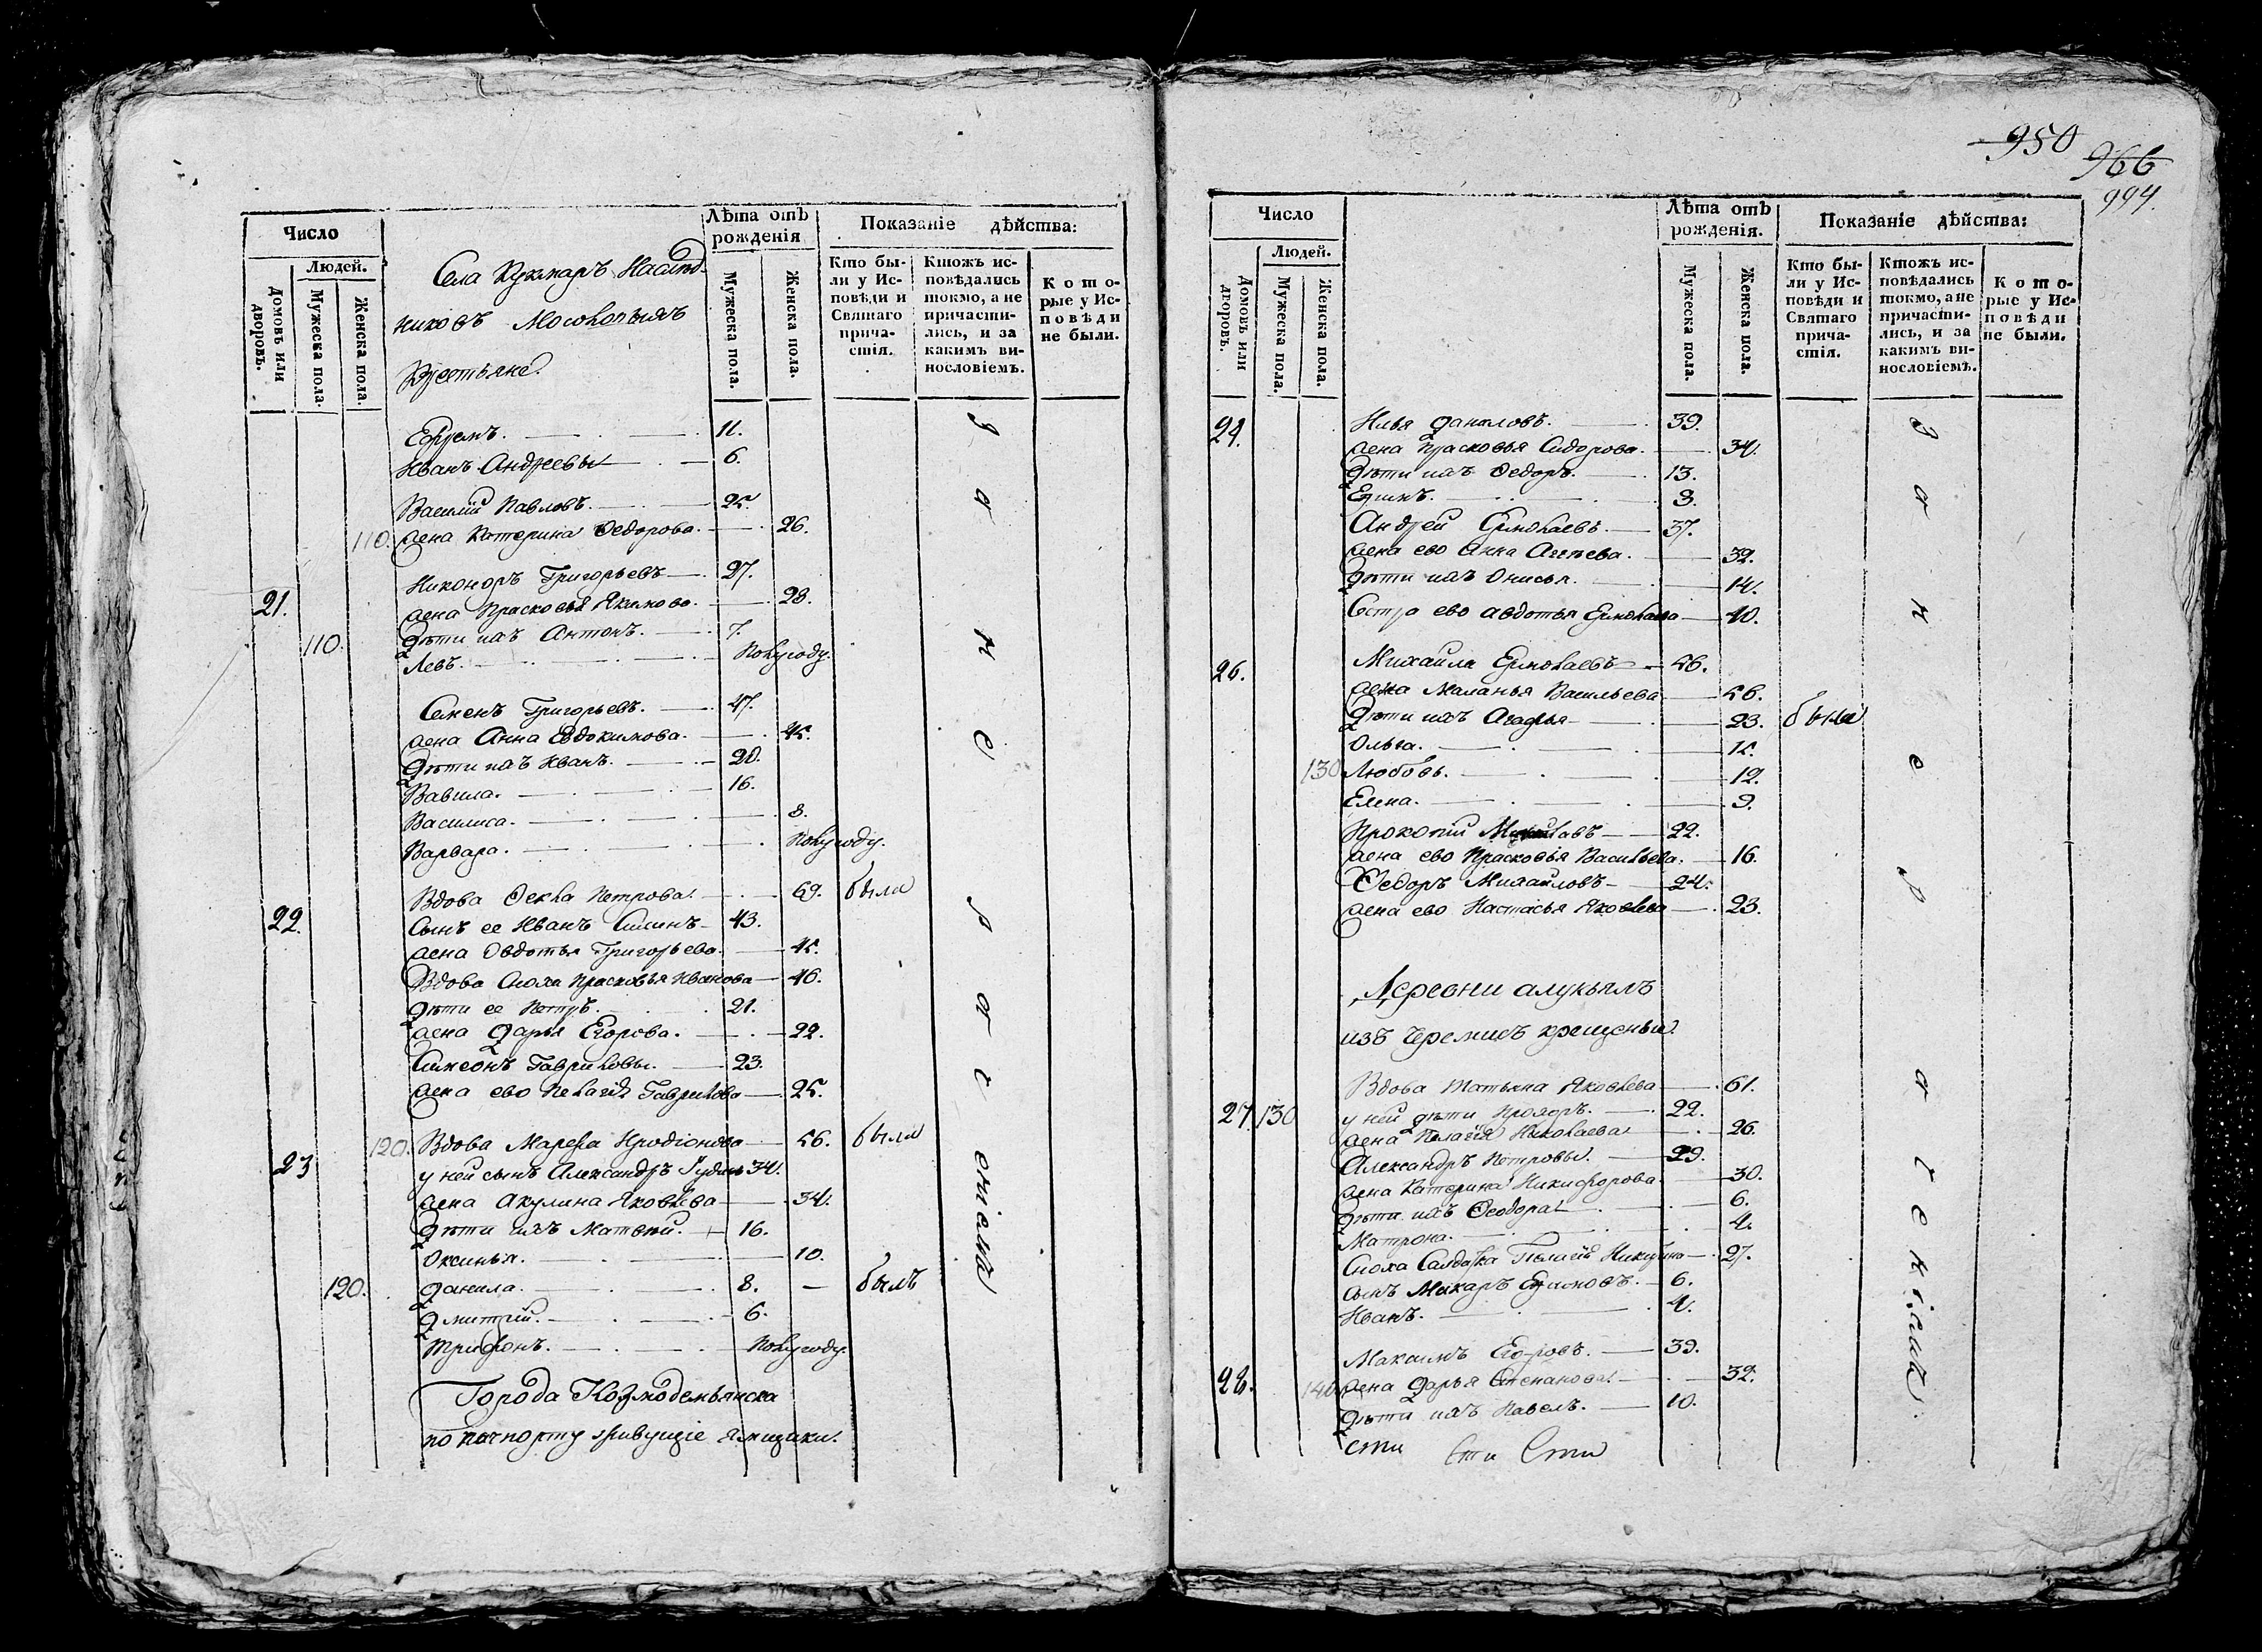 Число
Людей.
Домовъ или дворовъ.
Мужеска пола.
Женска пола.
Села Кукмаръ Наслѣд-
никовъ Мосоловыхъ
Крестьяне.
Лѣта отъ рожденія
Мужеска пола.
Женска пола.
Показаніе дѣйства:
Кто бы-
ли у Ис-
повѣди и
Святаго
прича-
стія.
Ктожъ ис-
повѣдались
токмо, а не
причасти-
лись, и за
какимъ ви-
нословіемъ.
Кото-
рые у Ис-
повѣди
не были.
Ефремъ. 11.
Иванъ Андреевы 6.
Василій Павловъ. 25.
110. жена Катерина Федорова. 26.
Никоноръ Григорьевъ 27.
21. жена Прасковья Якимова. 28.
110. дѣти ихъ Антонъ. 7.
Левъ. Полугоду.
Семенъ Григорьевъ. 47.
жена Анна Евдокимова. 45.
дѣти ихъ Иванъ. 20.
Вавила. 16.
Василиса. 8.
Варвара. Полугоду.
Вдова Фекла Петрова. 69. была
22. Сынъ ее Иванъ 43.
жена Овдотья Григорьева. 45.
Вдова Сноха Прасковья Иванова 46.
дѣти ее Петръ. 21.
жена Дарья Егорова. 22.
Симеонъ Гавриловы. 23.
жена ево Пелагія Гаврилова 25.
120. Вдова Марѳа Иродіонова 56. была
23 у ней сынъ Александръ 34.
жена Акулина Яковлева 34.
дѣти ихъ Матвѣй. 16.
Оксинья. 10.
120. Данила. 8. былъ
Дмитрій. 6.
Трифонъ. Полугоду.
Города Козмодемьянска
по пачпорту живущіе ямщики.
950
966
994.
Число
Людей.
Домовъ или дворовъ.
Мужеска пола.
Женска пола.
Лѣта отъ рожденія.
Мужеска пола.
Женска пола.
Показаніе дѣйства:
Кто бы-
ли у Ис-
повѣди и
Святаго
прича-
стія.
Ктожъ ис-
повѣдались
токмо, а не
причасти-
лись, и за
какимъ ви-
нословіемъ.
Кото-
рые у Ис-
повѣди
не были.
24. Илья Даниловъ. 39.
жена Прасковья Сидорова. 34.
дѣти ихъ Федоръ. 13.
3.
Андрей Ермолаевъ. 37.
жена ево Анна 32.
дѣти ихъ Онисья. 14.
Сестра ево Авдотья Ермолаева 40.
26. Михаила Ермолаевъ 56.
жена Маланья Васильева 56.
дѣти ихъ Агафья 23. была
Ольга. 15.
130 Любовь. 12.
Елена. 9.
Прокопій 22.
жена ево Прасковія Васильева. 16.
Федоръ Михайловъ 24.
жена ево Настасья Яковлева 23.
Деревни
изъ Черемисъ крещеныя.
Вдова Татьяна Яковлева 61.
27. 130 у ней дѣти 22.
жена Пелагія Николаева 26.
Александръ Петровы. 29.
жена Катерина Никифорова 30.
дѣти ихъ Феодора 6.
Матрона. 4.
Сноха Салдатка Пелагія 27.
сынъ Макаръ Ефимовъ. 6.
Иванъ. 4.
Максимъ Егоровъ. 39.
28. 140 жена Дарья Степанова. 32.
дѣти ихъ Павелъ. 10.
сти сти Сти